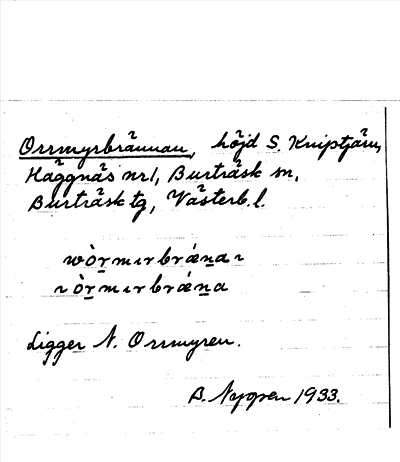 Orrmyrbrännan, höjd S. Kniptjärn,
Häggnäs nr1, Burträsk sn,
Burträsk tg, Västerb.l.
wòr̲mırbrǽn̲a ı
ı òr̲mırbrǽn̲a
Ligger N. Orrmyren.
B. Nygren 1933.